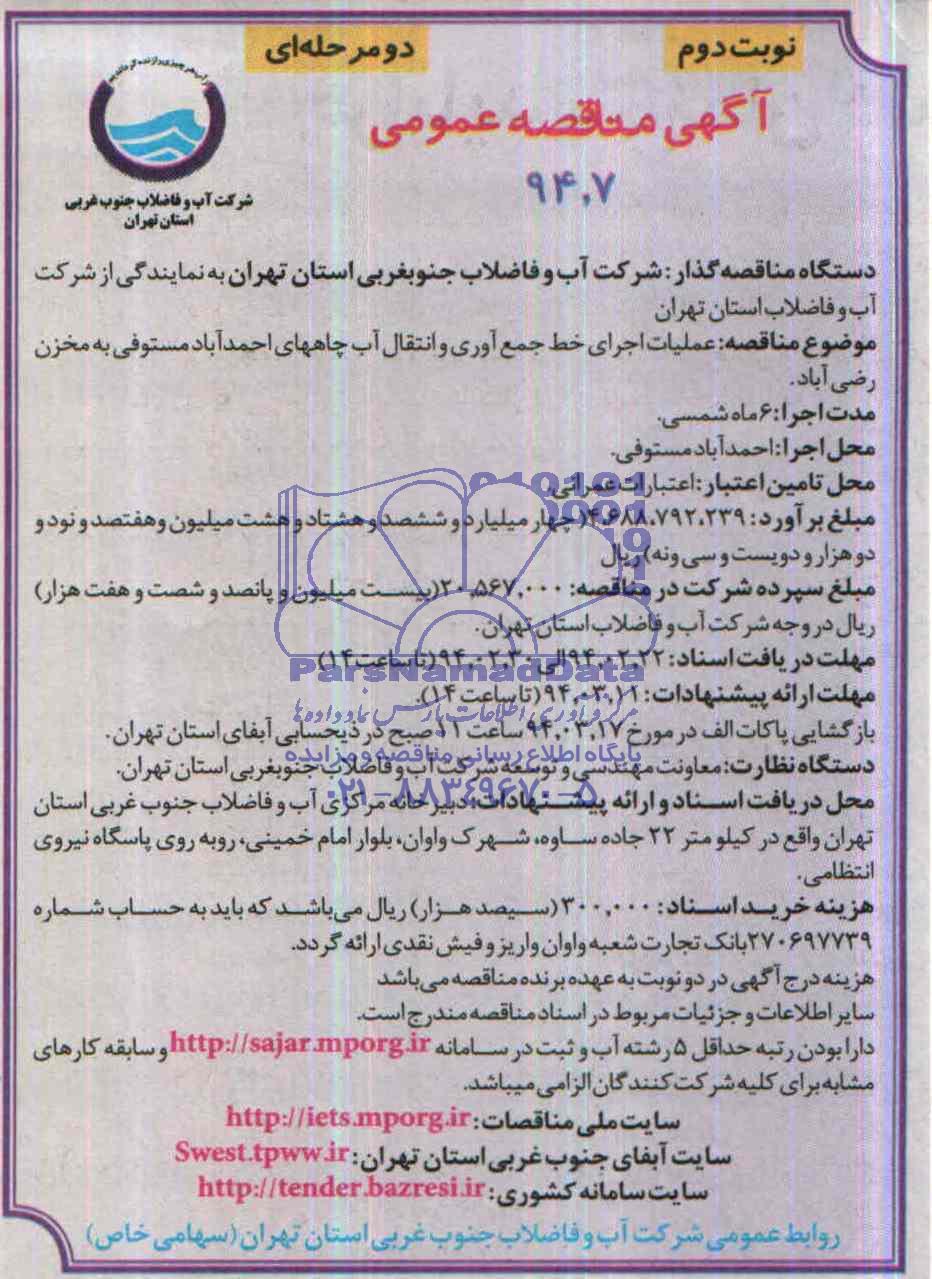 نوبت دوم
دو مرحله‌ای
آب هر چیزی را زنده گرداندیم
آگهی مناقصه عمومی
۹۴,۷
شرکت آب و فاضلاب جنوب غربی
استان تهران
دستگاه مناقصه گذار: شرکت آب و فاضلاب جنوبغربی استان تهران به نمایندگی از شرکت
آب و فاضلاب استان تهران
موضوع مناقصه: عملیات اجرای خط جمع آوری و انتقال آب چاههای احمدآباد مستوفی به مخزن
رضی آباد.
مدت اجرا: ۶ ماه شمسی.
محل اجرا: احمدآباد مستوفی.
محل تامین اعتبار: اعتبارات عمرانی.
مبلغ برآورد: ۴,۶۸۸,۷۹۲,۲۳۹ (چهار میلیارد و ششصد و هشتاد و هشت میلیون و هفتصد و نود و
دو هزار و دویست و سی و نه) ریال
مبلغ سپرده شرکت در مناقصه: ۲۰,۵۶۷,۰۰۰ (بیست میلیون و پانصد و شصت و هفت هزار)
ریال در وجه شرکت آب و فاضلاب استان تهران.
مهلت دریافت اسناد: ۹۴,۰۲,۲۲ الی ۹۴,۰۲,۳۰ (تا ساعت ۱۴)
ParsNamadData
مهلت ارائه پیشنهادات: ۹۴,۰۳,۱۱ (تا ساعت ۱۴).
مرکز فرآوری اطلاعات پارس نماد داده‌ها
بازگشایی پاکات الف در مورخ ۹۴,۰۳,۱۷ ساعت ۱۱ صبح در ذیحسابی آبفای استان تهران.
پایگاه اطلاع رسانی مناقصه و مزایده
دستگاه نظارت: معاونت مهندسی و توسعه شرکت آب و فاضلاب جنوبغربی استان تهران.
۰۲۱-۸۸۳۴۹۶۷۰-۵
محل دریافت اسناد و ارائه پیشنهادات: دبیرخانه مراکزی آب و فاضلاب جنوب غربی استان
تهران واقع در کیلومتر ۲۲ جاده ساوه، شهرک واوان، بلوار امام خمینی، روبه روی پاسگاه نیروی
انتظامی.
هزینه خرید اسناد: ۳۰۰,۰۰۰ (سیصد هزار) ریال می‌باشد که باید به حساب شماره
۲۷۰۶۹۷۷۳۹ بانک تجارت شعبه واوان واریز و فیش نقدی ارائه گردد.
هزینه درج آگهی در دو نوبت به عهده برنده مناقصه می‌باشد
سایر اطلاعات و جزئیات مربوط در اسناد مناقصه مندرج است.
دارا بودن رتبه حداقل ۵ رشته آب و ثبت در سامانه http://sajar.mporg.ir و سابقه کارهای
مشابه برای کلیه شرکت کنندگان الزامی میباشد.
سایت ملی مناقصات: http://iets.mporg.ir
سایت آبفای جنوب غربی استان تهران: Swest.tpww.ir
سایت سامانه کشوری: http://tender.bazresi.ir
روابط عمومی شرکت آب و فاضلاب جنوب غربی استان تهران (سهامی خاص)